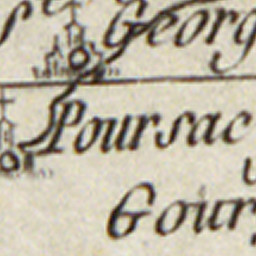 Georg
Poursac
Gour